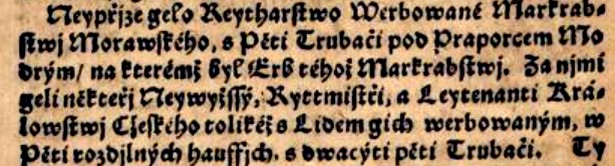 Neypřjze gelo Reytharstwo Werbowané Markrab-
stwj Morawského, s Pěti Trubači pod Praporcem Mo
drým/ na kterémž byl Erb téhož Markrabstwj. Za njmi
geli někteřj Neywyžssý, Ryttmistři, a Leytenanti Krá-
lowstwj Cžeského tolikéž s Lidem gich werbowaným, w
Pěti rozdjlných hauffjch, s dwacýti pěti Trubači. Ty